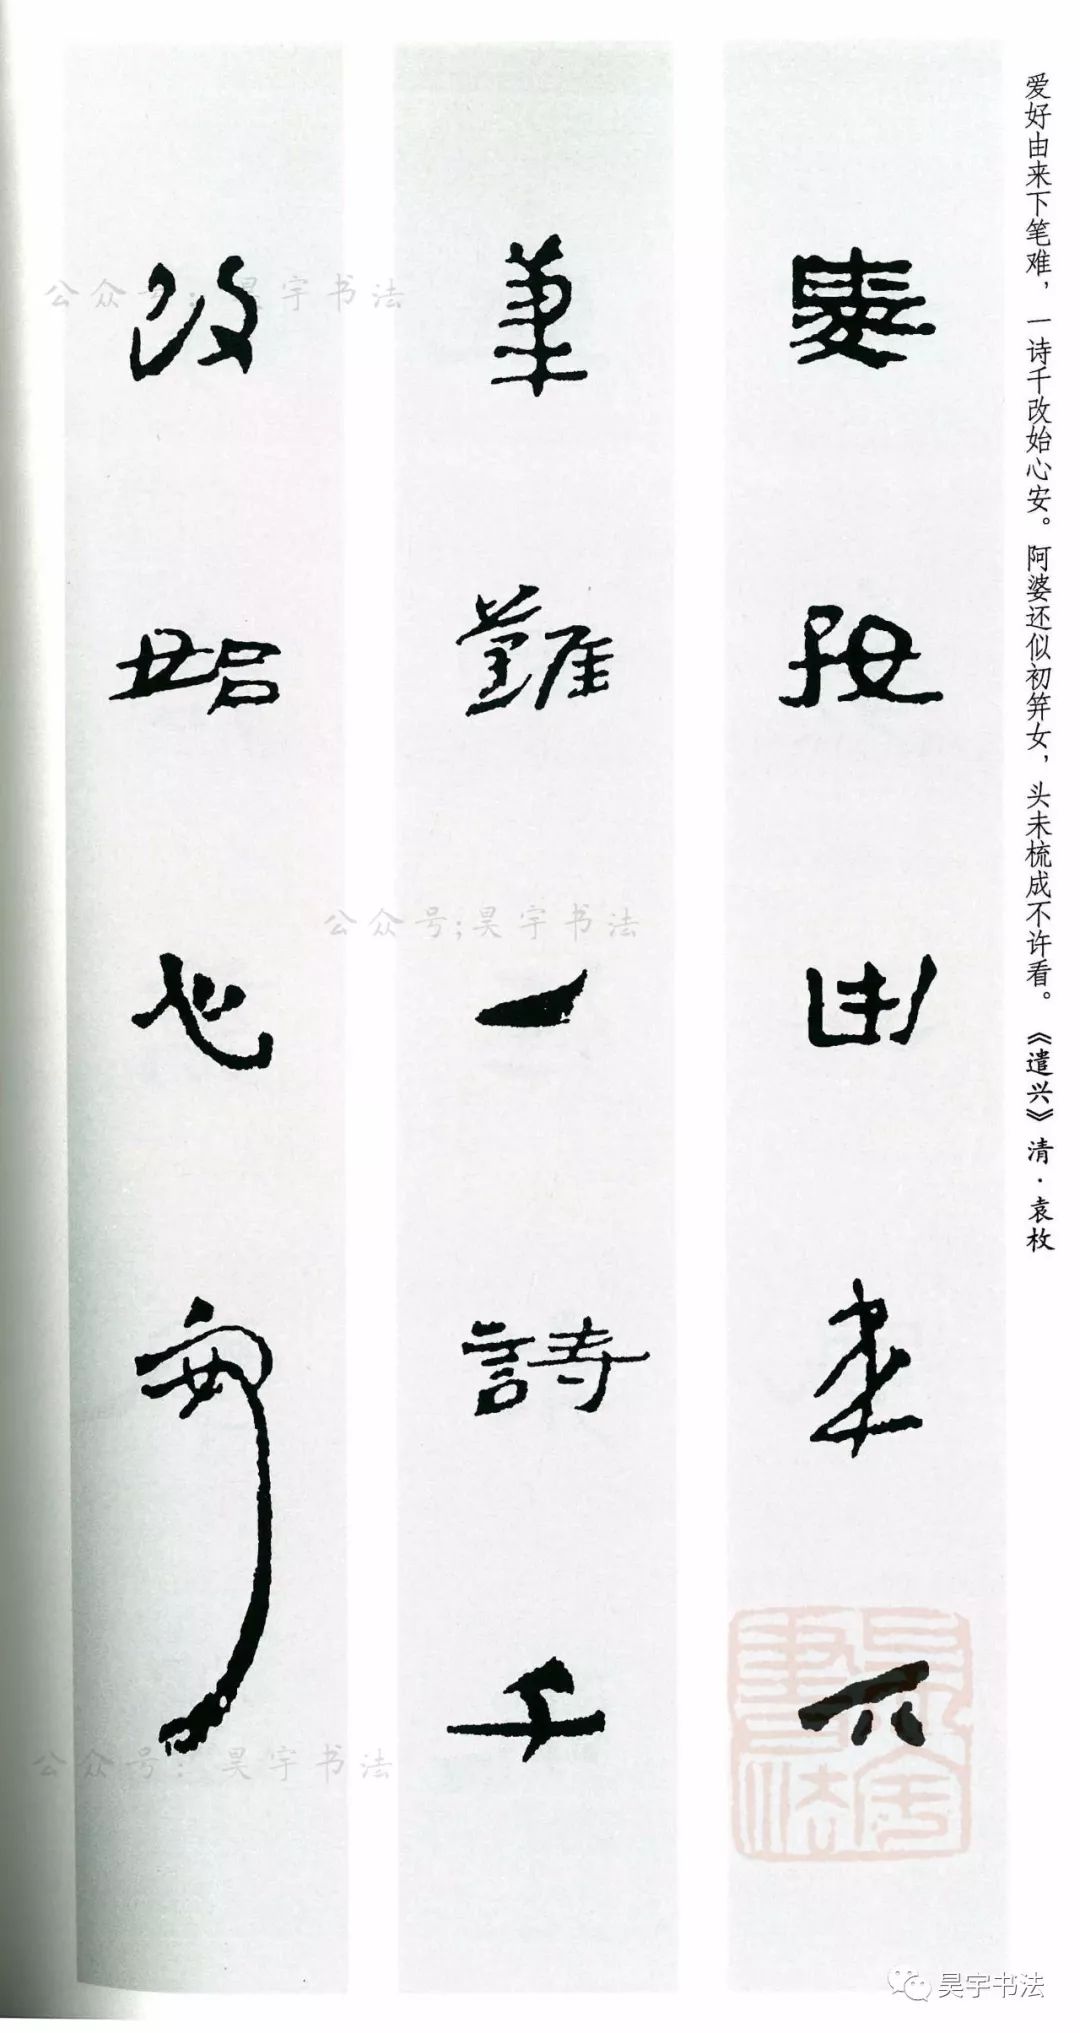 爱好由来下笔难，一诗千改始心安。阿婆还似初笄女，头未梳成不许看。《遣兴》清·袁枚
愛好由来下
筆難一詩千
改始心安
公众号：昊宇书法
公众号；昊宇书法
公众号：昊宇书法
昊宇書法
昊宇书法